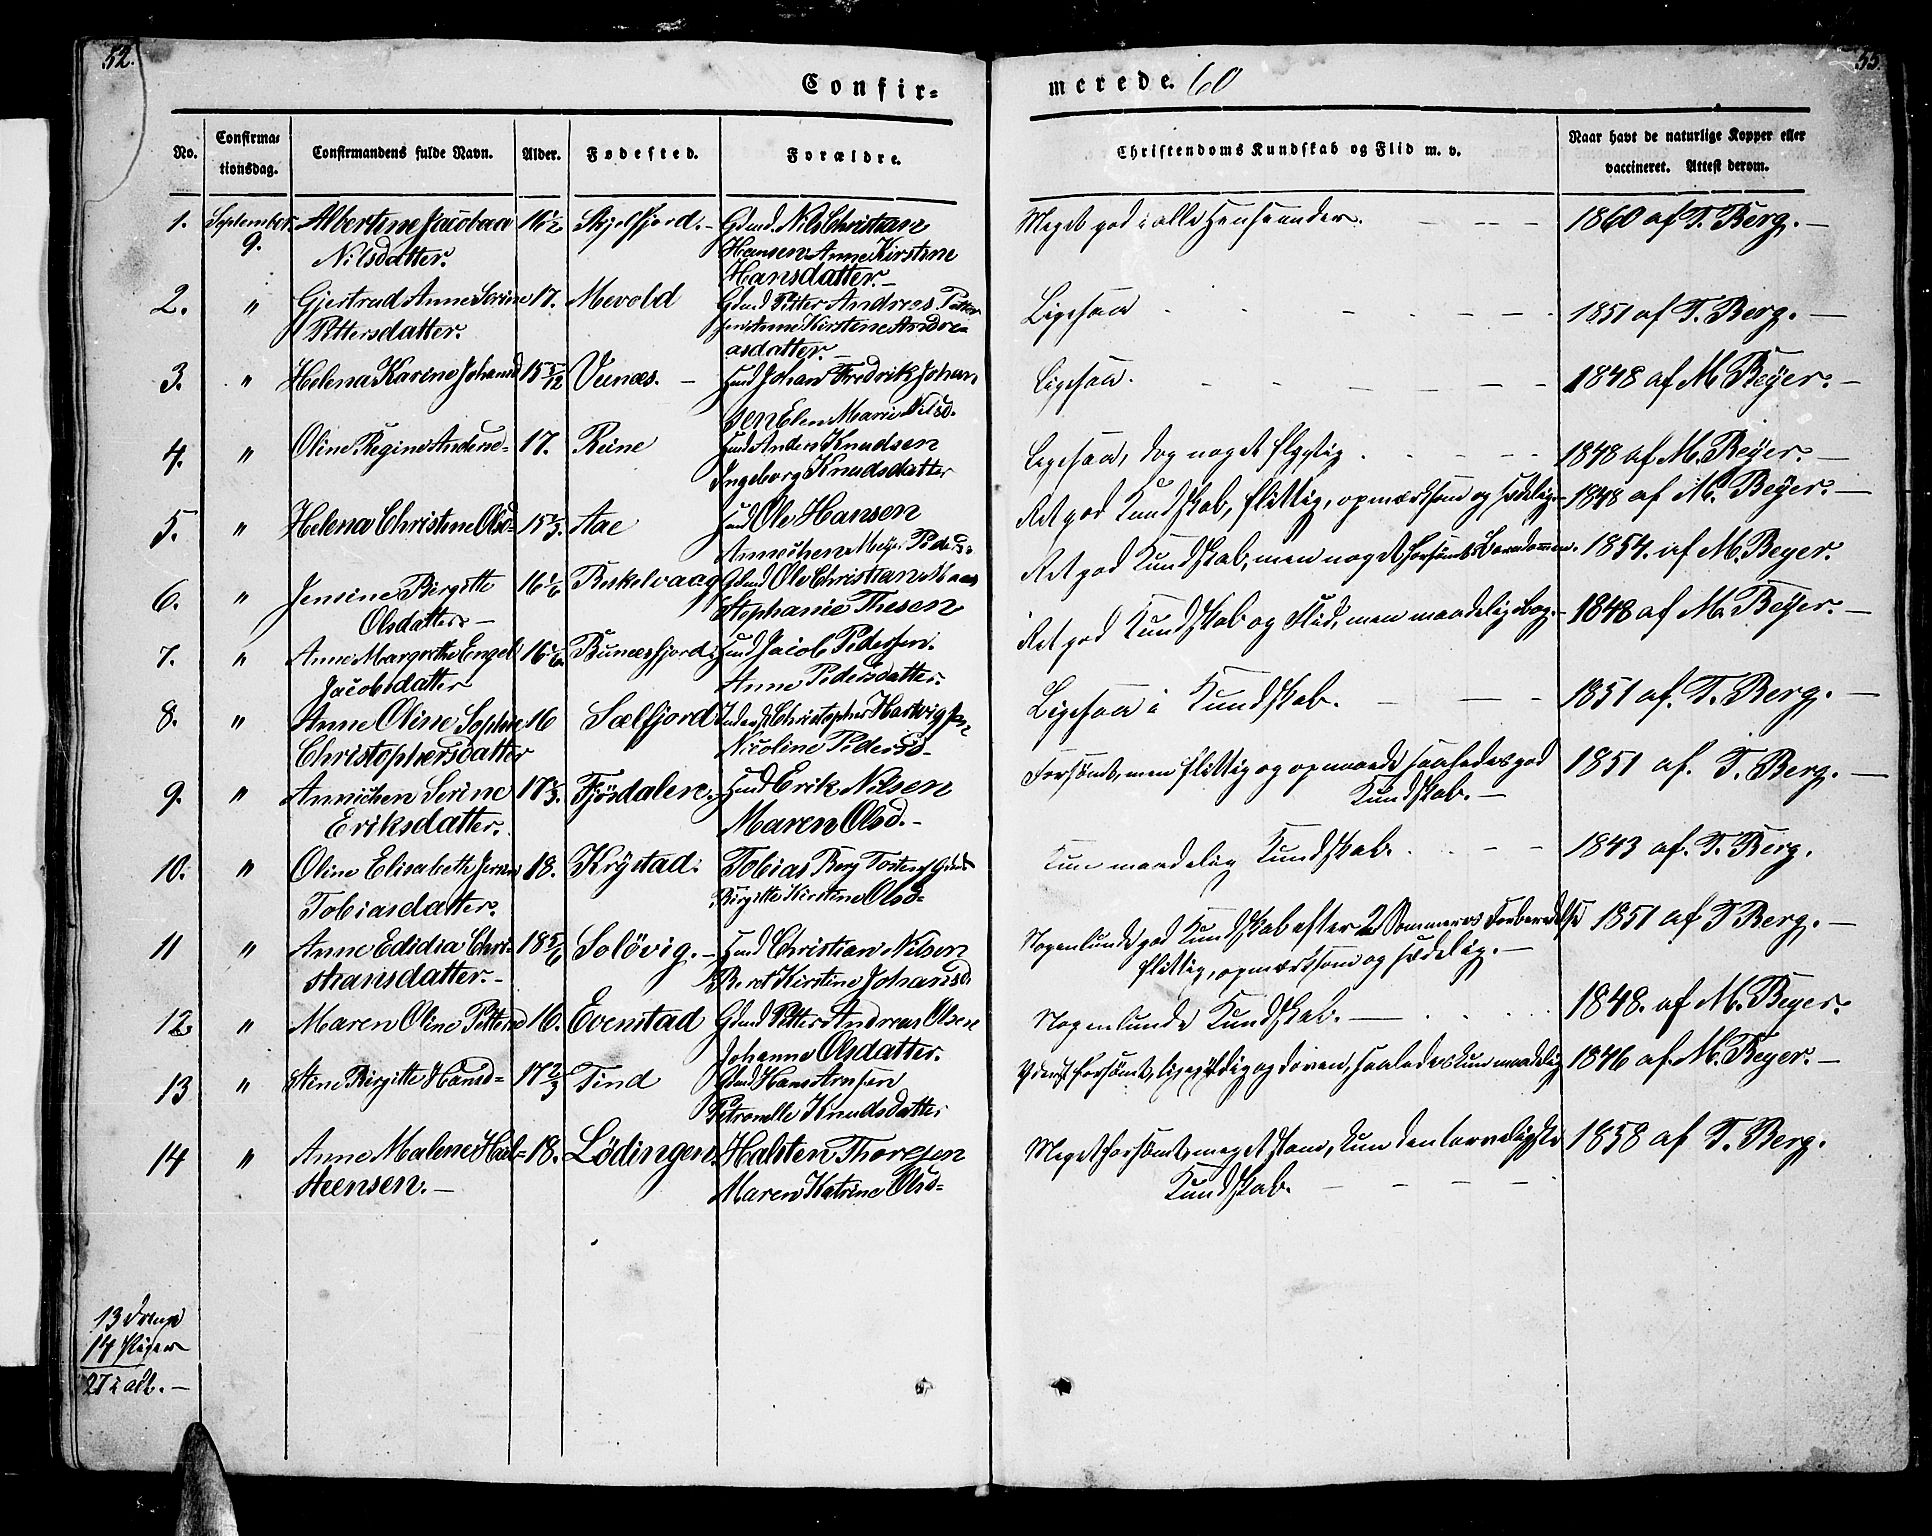 52.
55.
Confir-
merede. 60
No.
Confirma-
tionsdag.
Confirmandens fulde Navn.
Alder.
Fødested.
Forældre.
Christendoms Kundskab og Flid m. v.
Naar havt de naturlige Kopper eller
vaccineret. Attest derom.
1. September 9. Albertine Jacobaa 16 1/2 Skjelfjord. Gdmd. Nils Christian Meget god i alle Henseender. 1860 af T. Berg.
Nilsdatter. Hansen Anne Kirstine
Hansdatter.
2. " Gjertrud Anne Serine 17. Mevold Gdmd Petter Andreas Petter Ligesaa 1851 af T. Berg.
Pettersdatter. sen Anne Kirstine Andre-
asdatter.
3. " Helena Karine Johansd 15 5/12 Vunæs. Hmd Johan Fredrik Johan Ligesaa. 1848 af M. Beÿer.
sen Elen Marie Nilsd.
4. " Oline Regine Anders- 17. Reine Hmd Anders Knudsen Ligesaa, dog noget flygtig. 1848 af M. Beÿer.
Ingeborg Knudsdatter
5. " Helena Christine Olsd- 15 2/3 Aae Hmd Ole Hansen Ret god Kundskab, flittig, opmærksom og sædelig. 1848 af M. Beÿer.
Annichen Meyer Peders-
6. " Jensine Birgitte 16 1/6 Beskelvaag Gdmd Ole Christian Ret god Kundskab, men noget forsømt Barndommen. 1854. af M. Beyer.
Olsdatter Stephanie Thesen
7. " Anne Margrethe Engel 16 1/6 Bunæsfjord Hmd Jacob Pedersen. Ret god Kundskab og Flid, men maadelig Bog. 1848 af M. Beÿer.
Jacobsdatter Anne Pedersdatter.
8. " Anne Oline Sophie 16 Sælfjord Inderst Christopher Hartvigs Ligesaa i Kundskab. 1851 af. T. Berg.
Christophersdatter Nicoline Pedersd-
9. " Annichen Serine 17 1/3. Fjösdalen. Hmd Erik Nilsen Forsømt, men flittig og opmærks saaledes god 1851 af. T. Berg.
Eriksdatter. Maren Olsd. Kundskab.
10. " Oline Elisabeth 18. Krystad. Tobias Berg Torsten Kun maadelig Kundskab. 1843 af. T. Berg.
Tobiasdatter. Birgitte Kirstine Olsd-
11 " Anne Edidia Chri- 18 5/6 Solövig. Hmd Christian Nilsen Nogenlunde god Kundskab efter 2 Sommeres Forberedelse 1851 af T Berg.
stiansdatter. Berit Kirstine Johansd. flittig, opmærksom og sædelig.
12 " Maren Oline Petters 16. Evenstad Gdmd Petter Andreas Olsen Nogenlunde Kundskab. 1848. af M. Beyer.
Johanne Olsdatter.
13 " Stine Birgitte Hansd- 17 2/3 Tind Gdmd Hans Arnsen Yderst forsømt, ligegyldig og doven, saaledes kun maadelig 1846 af M. Beyer.
Petronelle Knudsdatter
14 " Anne Malene Hal- 18. Lödingen. Halsten Thoresen Meget forsømt, meget svag, kun den tarveligste 1858 af T. Berg.
steensen. Maren Katrine Olsd- Kundskab.
13 Drenge
14 Piger
27 i alt.